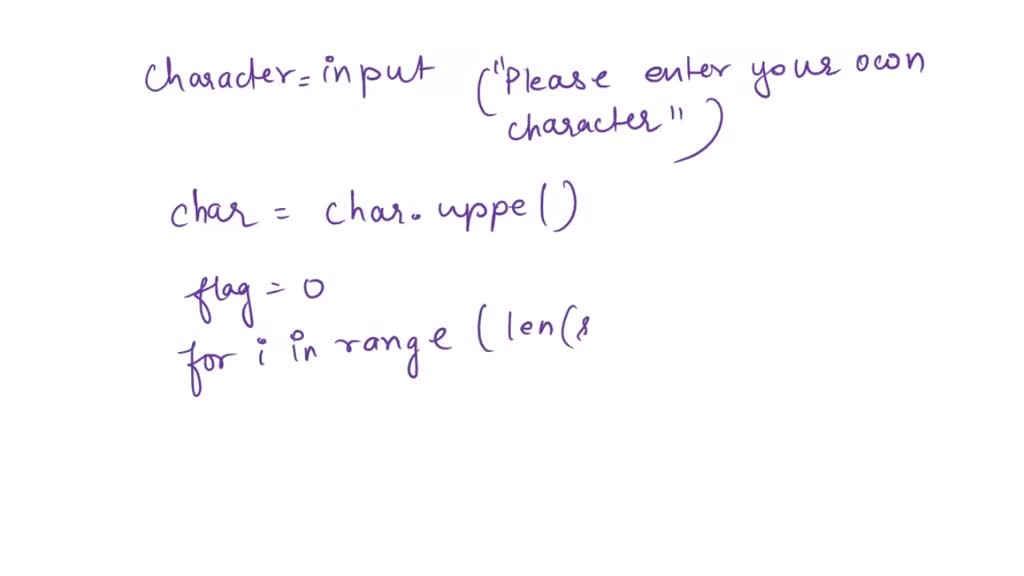 character = input ("Please enter your own
character")
char = char.uppe()
flag = 0
for i in range (len(s